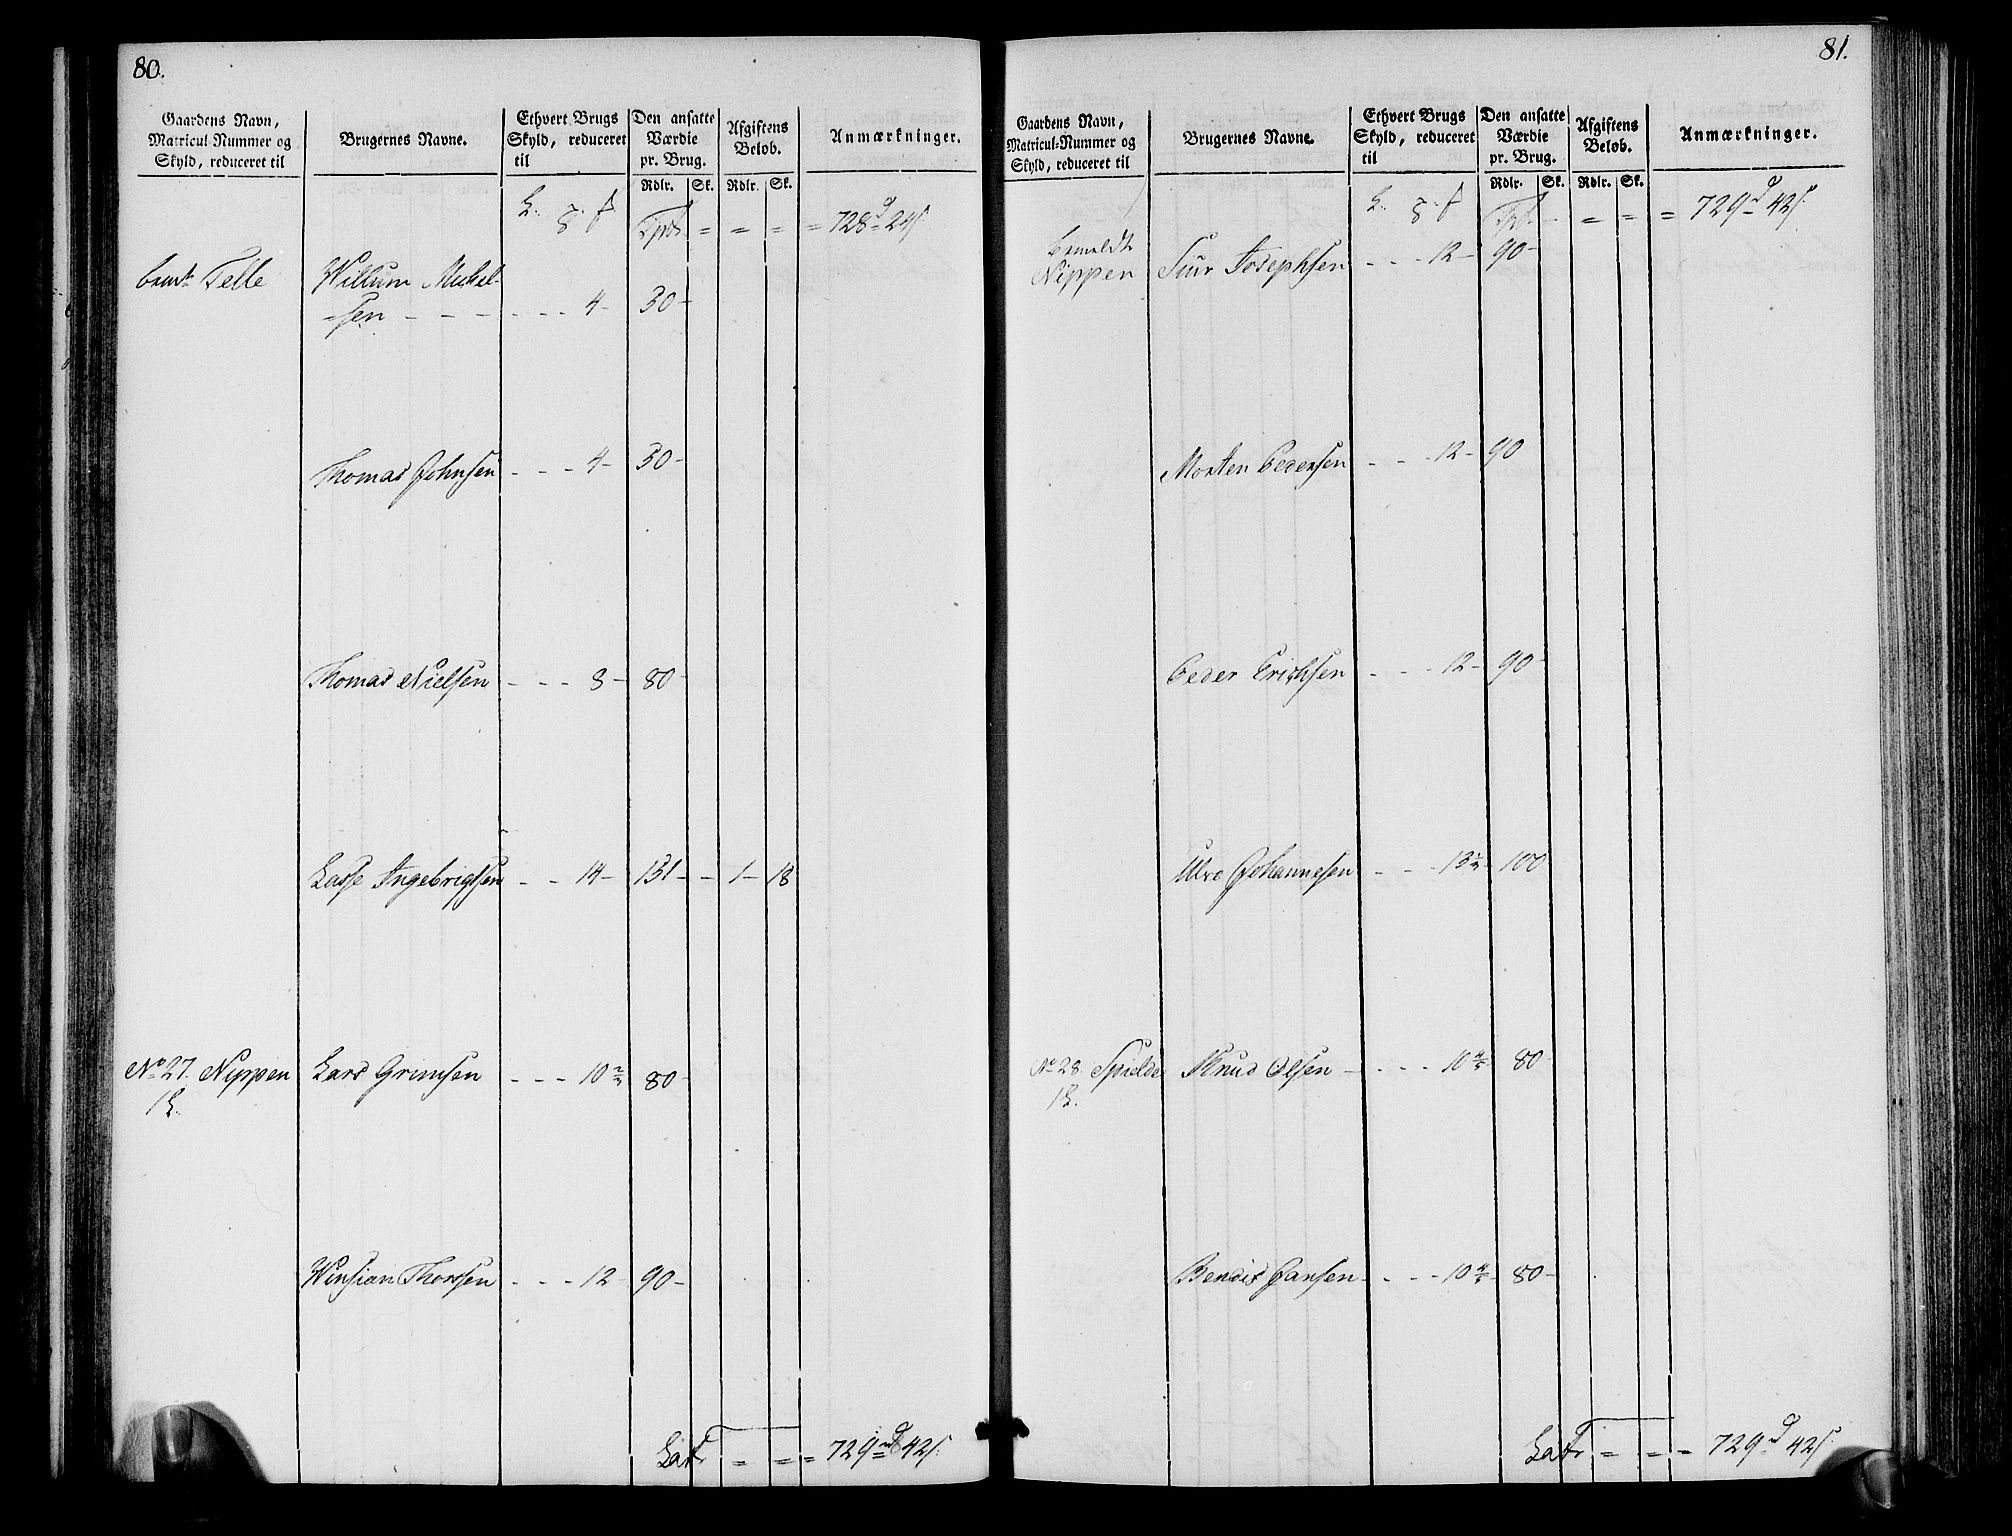 80.
Gaardens Navn, Matricul-Nummer og Skyld, reduceret til
Brugernes Navne.
Ethvert Brugs Skyld, reduceret til
Den ansatte Værdie pr. Brug.
Afgiftens Beløb.
Anmærkninger.
Rdlr. Sk. Rdlr. Sk.
728 d 24 s
Telle Willum Mickel-
sen - - - - - - 4 - 30 -
Thomas Johnsen - - - 4 - 30 -
Thomas Nielsen - - - 8 - 80 -
Lasse Ingebrigtsen - - 14 - 131 - - 1 - 18
No 27. Nippen Lars Grimsen - - - 10 2/3 80 -
1 L.
Winsian Thorsen - - - 12 - 90 -
Latr = = = 729 d 42 s.
81.
Gaardens Navn, Matricul-Nummer og Skyld, reduceret til
Brugernes Navne.
Ethvert Brugs Skyld, reduceret til
Den ansatte Værdie pr. Brug.
Afgiftens Beløb.
Anmærkninger.
Rdlr. Sk. Rdlr. Sk.
729 d 42 s.
bemeldte
Nippen Siur Josephsen - - - 12 - 90 -
Morten Pedersen - - - 12 - 90
Peder Erichsen - - - 12 - 90 -
Johannesen - - - 13 1/2 - 100
No 28. Spielde Knud Olsen - - - - 10 4/5 - 80
1 L.
Bendix Hansen - - - - 10 4/5 - 80 -
Latr = = = 729 d 42 s.